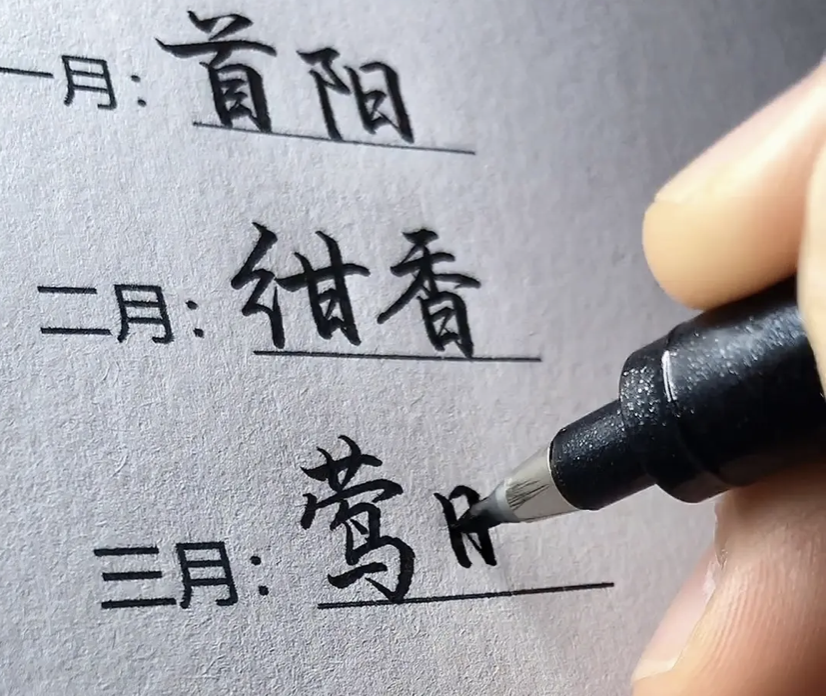 一月：首阳
二月：绀香
三月：莺